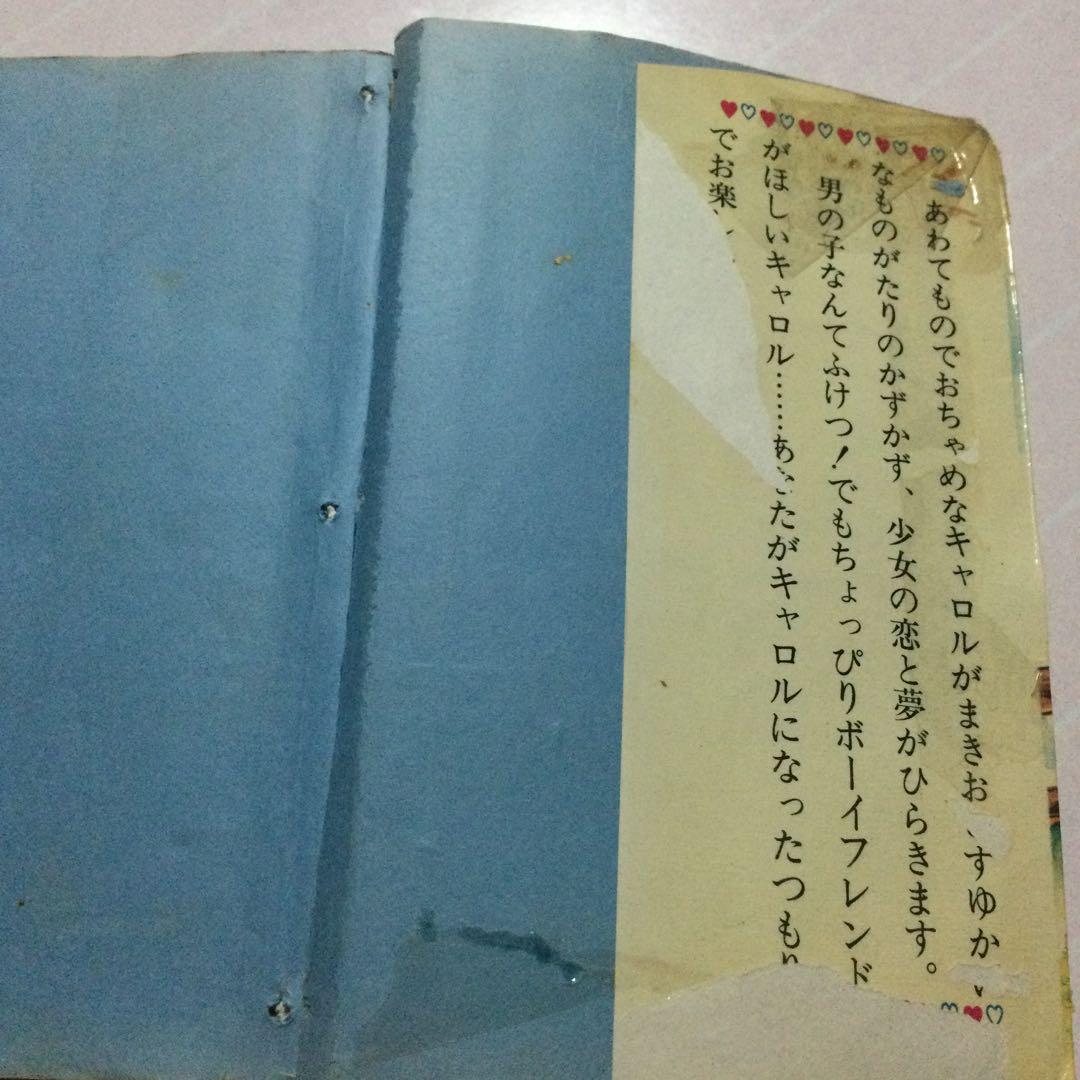 あわてものでおちゃめなキャロルがまきお すゆか
なものがたりのかずかず、少女の恋と夢がひらきます。
男の子なんてふけつ!でもちょっぴりボーイフレンド
がほしいキャロル……あ たがキャロルになったつもり
でお楽